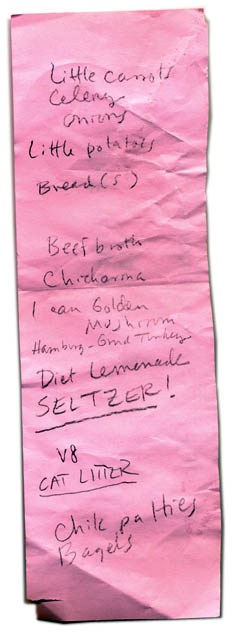 Little carrots
Celery
onions
Little potatoes
Bread(s)
Beef broth
Chicharina
1 can Golden
Mushroom
Hamburg - Grnd Turkey
Diet Lemonade
SELTZER!
V8
CAT LITTER
Chik patties
Bagels